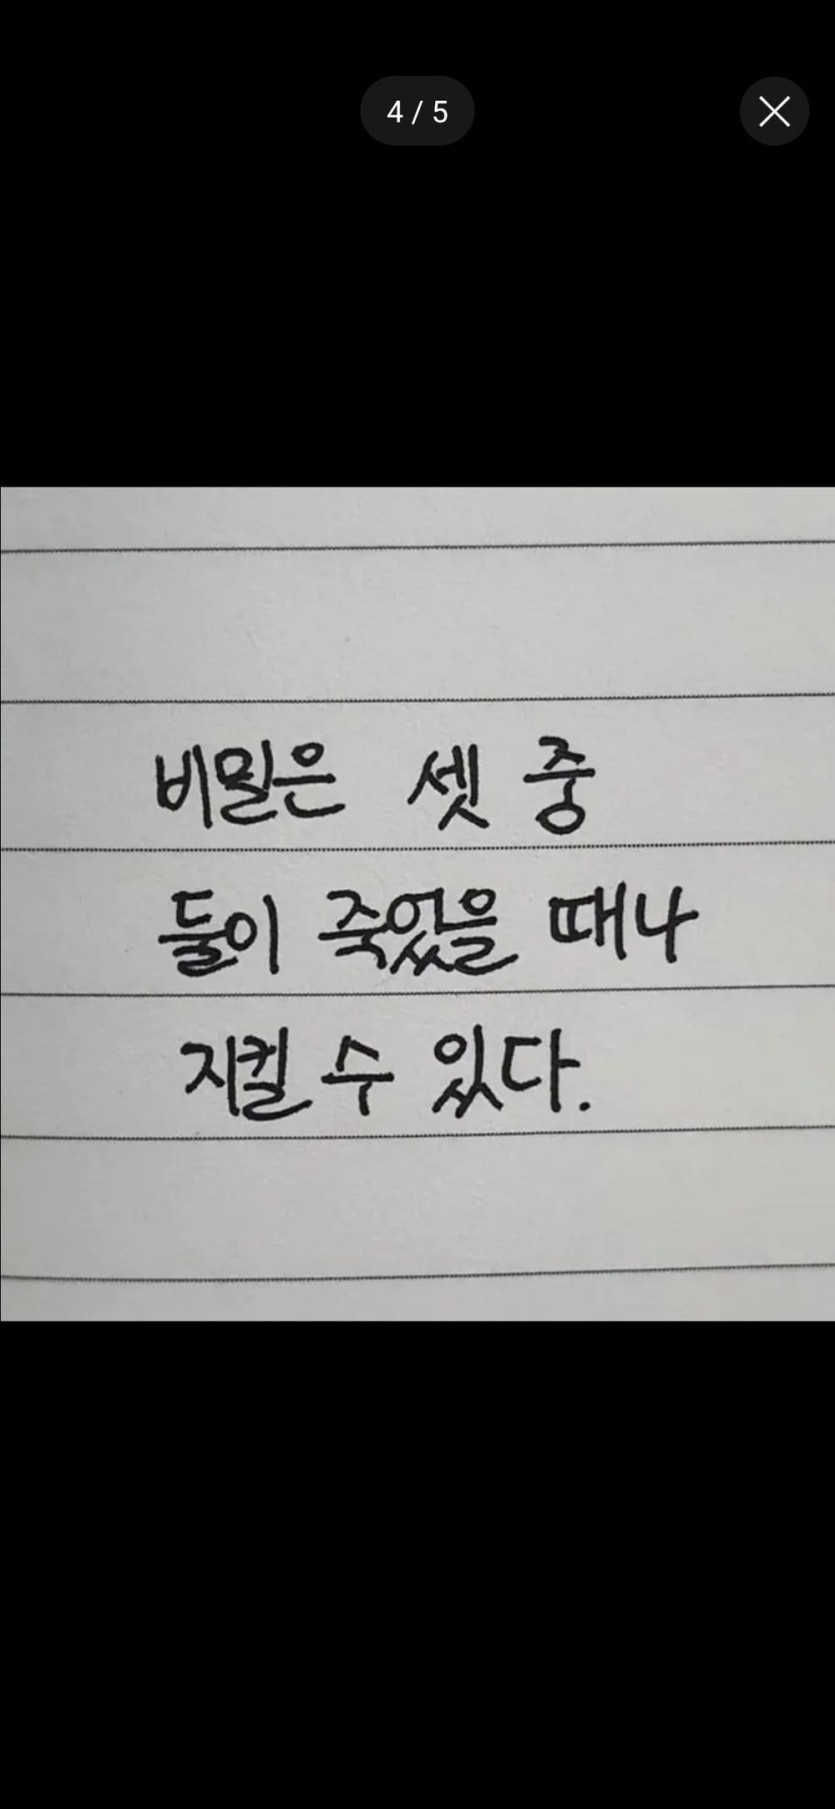 4 / 5
비밀은 셋 중
둘이 죽었을 때나
지킬 수 있다.